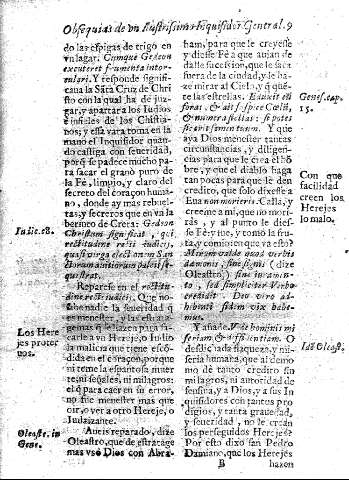 Obsequias de un Ilustrissimo Inquisidor General. 9
do las espigas de trigo en
vn lagar. Cumque Gedeon
excuteret frumenta in torculari.
Y responde significava
la Sãta Cruz de Christo
con la qual ha de juzgar,
y apartar a los Iudios
infieles de los Christianos;
y esta vara toma en la
mano el Inquisidor quando
castiga con seueridad,
porq̃ se padece mucho para
sacar el grano puro de
la Fé, limpio, y claro del
secreto del coraçon humano,
donde ay mas rebueltas,
y secretos que en va la
berinto de Creta: Gedeon
Christum significat, qui
rectitudine recti iudicij,
quasi virga electionem Sanctorum
Reparese en el rectitudine
recti iudicij. Que no
sabe nadie la seueridad q̃
es menester, y las estratagemas
que hazen para sacarle
a vn Herejo, o Iudio
la malicia que tiene escõdida
en el coraçon, porque
ni teme la espantosa muerte,
ni señales, ni milagros:
el q̃ para caer en su error,
no fue menester mas que
oir, o ver a otro Herejo, o
Iudaizante.
Aueis reparado, dize
Oleastro, que de estratagemas
vsò Dios con Abraham,
para que le creyesse
y diesse Fè a que aujan de
darle sucession, que le sacò
fuera de la ciudad, y le hazo
mirar al Cielo, y q̃ contasse
las estrellas. Eduxit eum
foras, & ait suspice Cœlũ,
& numera stellas: si potes
sic erit semen tuum. Y que
aya Dios menester tantas
circunstancias, y diligencias
para que le crea el hõbre,
y que el diablo haga
tan pocas para que le den
credito, que solo dixesse a
Eua non morieris. Calla, y
creeme a mi, que no morirás,
y al punto le diesse
Fè, y fue, y tomò la fruta,
y comio en qua va esto?
Mirum valde quod verbis
dæmonis, sine signis (dize
Oleastro) sine iuramento,
sed simpliciter Verbo
credidit Deo viro adhibenti
fidem vix habemus.
Y añade. Væ homini miseriam
& affluentiam. O
desdichada flaqueza, y miseria
humana, que al demonio
dè tanto credito sin
milagros, ni autoridad de
sensura, y a Dios, y a sus Inquisidores
con tantos prodigios,
y tanta grauedad,
y seueridad, no le creàn
los perseguidos Herejes?
Por esto dixo san Pedro
Damiano, que los Herejes
B hazen
Iudic. c8.
Los Herejes
proteruos.
Oleastr. in
Gene.
Genes. cap.
15.
Con que
facilidad
creen los
Herejes
lo malo.
Idẽ Oleast.